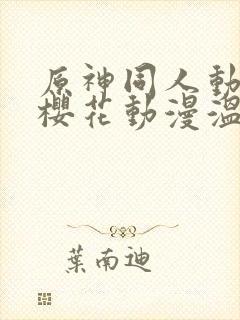 原神同人動
櫻花動漫溫
葉南迪